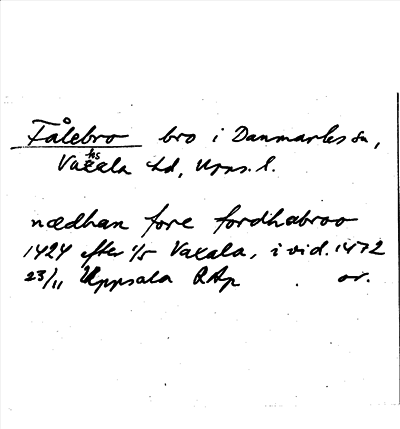 Fålebro bro i Danmarks sn,
Vaksala hd, Upps. l.
nædhan fore fordhabroo
1424 efter 1/5 Vaxala, i vid. 1472
23/11 Uppsala RAp or.